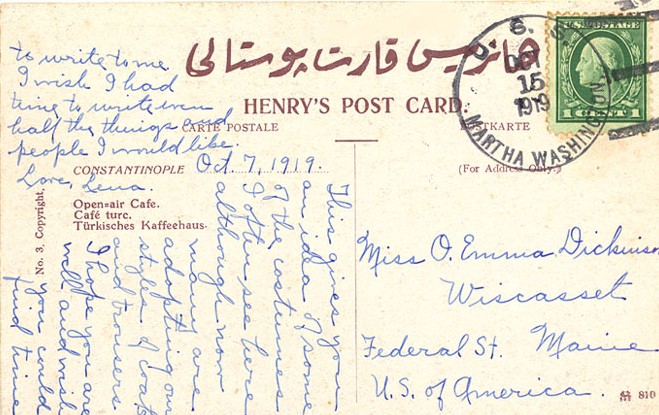 هانریس قارت پوستالی
HENRY'S POST CARD.
CARTE POSTALE
POSTKARTE
CONSTANTINOPLE Oct. 7, 1919.
(For Address Only.)
Open=air Cafe.
Café turc.
Türkisches Kaffeehaus.
No. 3. Copyright.
This gives you
an idea of some
of the costumes
I often see here
although now
many are
adopting our
styles of coats
and trousers
I hope you are
well and wish
you could
find time
to write to me
I wish I had
time to write even
half the things and
people I would like.
Love, Lena.
Miss O. Emma Dickinson
Wiscasset
Federal St. Maine
U.S. of America.
U. S. S.
OCT
15
1919
MARTHA WASHINGTON
U.S. POSTAGE
1 CENT 1
810